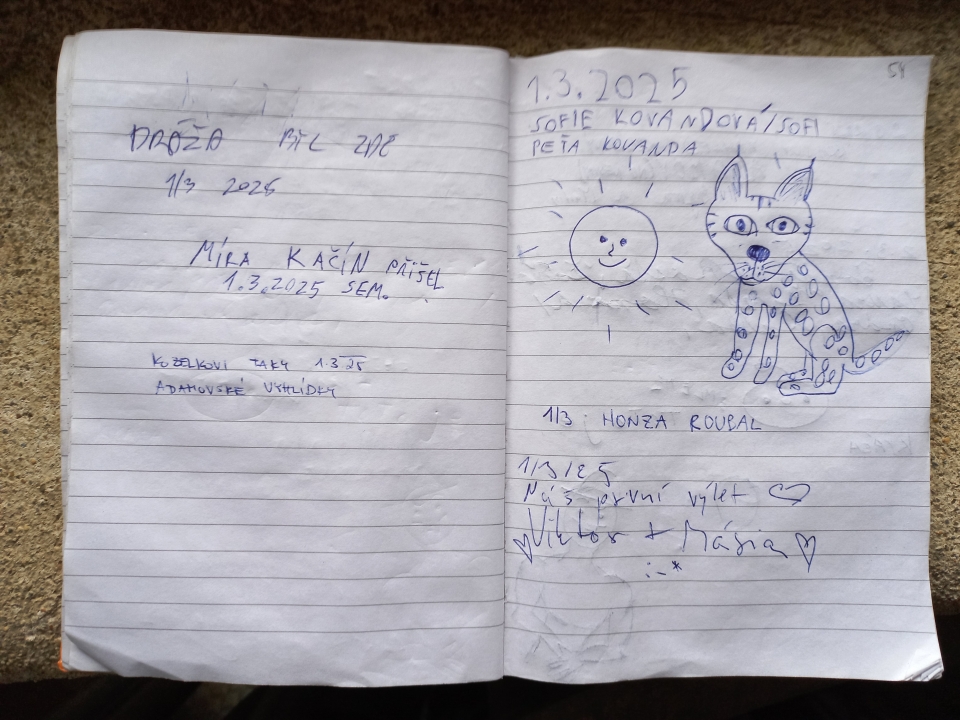 DRÁŽA BYL ZDE
1/3 2025
MÍRA KAČÍN PŘIŠEL
1.3.2025 SEM.
KOZELKOVI TAKY 1.3.25
ADAMOVSKÉ VYHLÍDKY
54
1.3.2025
SOFIE KOVANDOVÁ/SOFI
PEŤA KOVANDA
1/3 HONZA ROUBAL
1/3/25
Náš první výlet ♡
♡Viktor + Mária♡
:-*